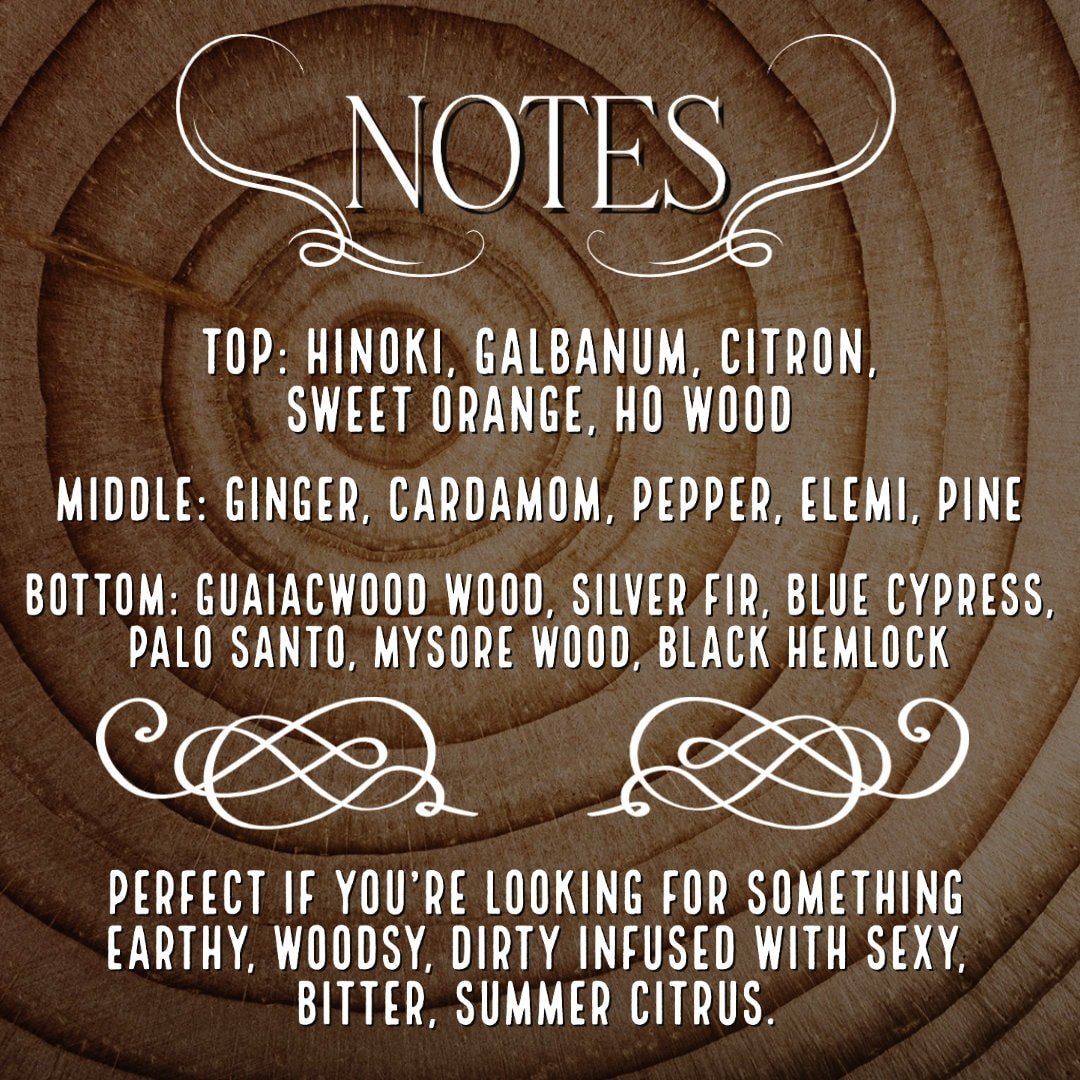 NOTES
TOP: HINOKI, GALBANUM, CITRON,
SWEET ORANGE, HO WOOD
MIDDLE: GINGER, CARDAMOM, PEPPER, ELEMI, PINE
BOTTOM: GUAIACWOOD WOOD, SILVER FIR, BLUE CYPRESS,
PALO SANTO, MYSORE WOOD, BLACK HEMLOCK
PERFECT IF YOU'RE LOOKING FOR SOMETHING
EARTHY, WOODSY, DIRTY INFUSED WITH SEXY,
BITTER, SUMMER CITRUS.